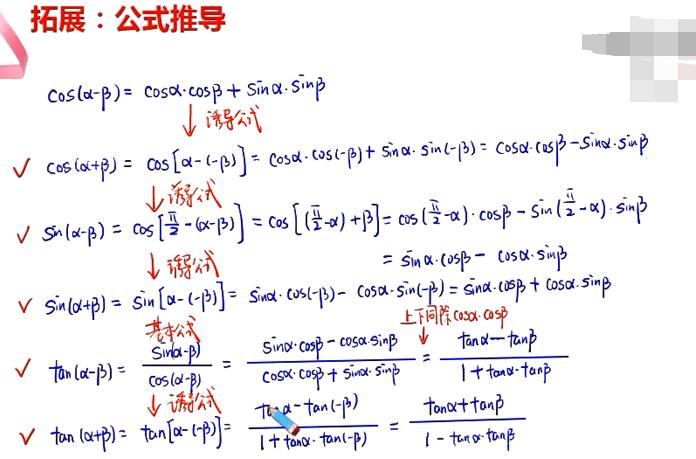 拓展：公式推导
cos(α-β) = cosα·cosβ + sinα·sinβ
↓诱导公式
✓ cos(α+β) = cos[α-(-β)] = cosα·cos(-β) + sinα·sin(-β) = cosα·cosβ - sinα·sinβ
↓诱导公式
✓ sin(α-β) = cos[π/2-(α-β)] = cos[(π/2-α)+β] = cos(π/2-α)·cosβ - sin(π/2-α)·sinβ
= sinα·cosβ - cosα·sinβ
↓诱导公式
✓ sin(α+β) = sin[α-(-β)] = sinα·cos(-β) - cosα·sin(-β) = sinα·cosβ + cosα·sinβ
基本公式 上下同除cosα·cosβ
✓ tan(α-β) = sin(α-β)/cos(α-β) = (sinα·cosβ - cosα·sinβ)/(cosα·cosβ + sinα·sinβ) = (tanα - tanβ)/(1 + tanα·tanβ)
↓诱导公式
✓ tan(α+β) = tan[α-(-β)] = (tanα - tan(-β))/(1 + tanα·tan(-β)) = (tanα + tanβ)/(1 - tanα·tanβ)